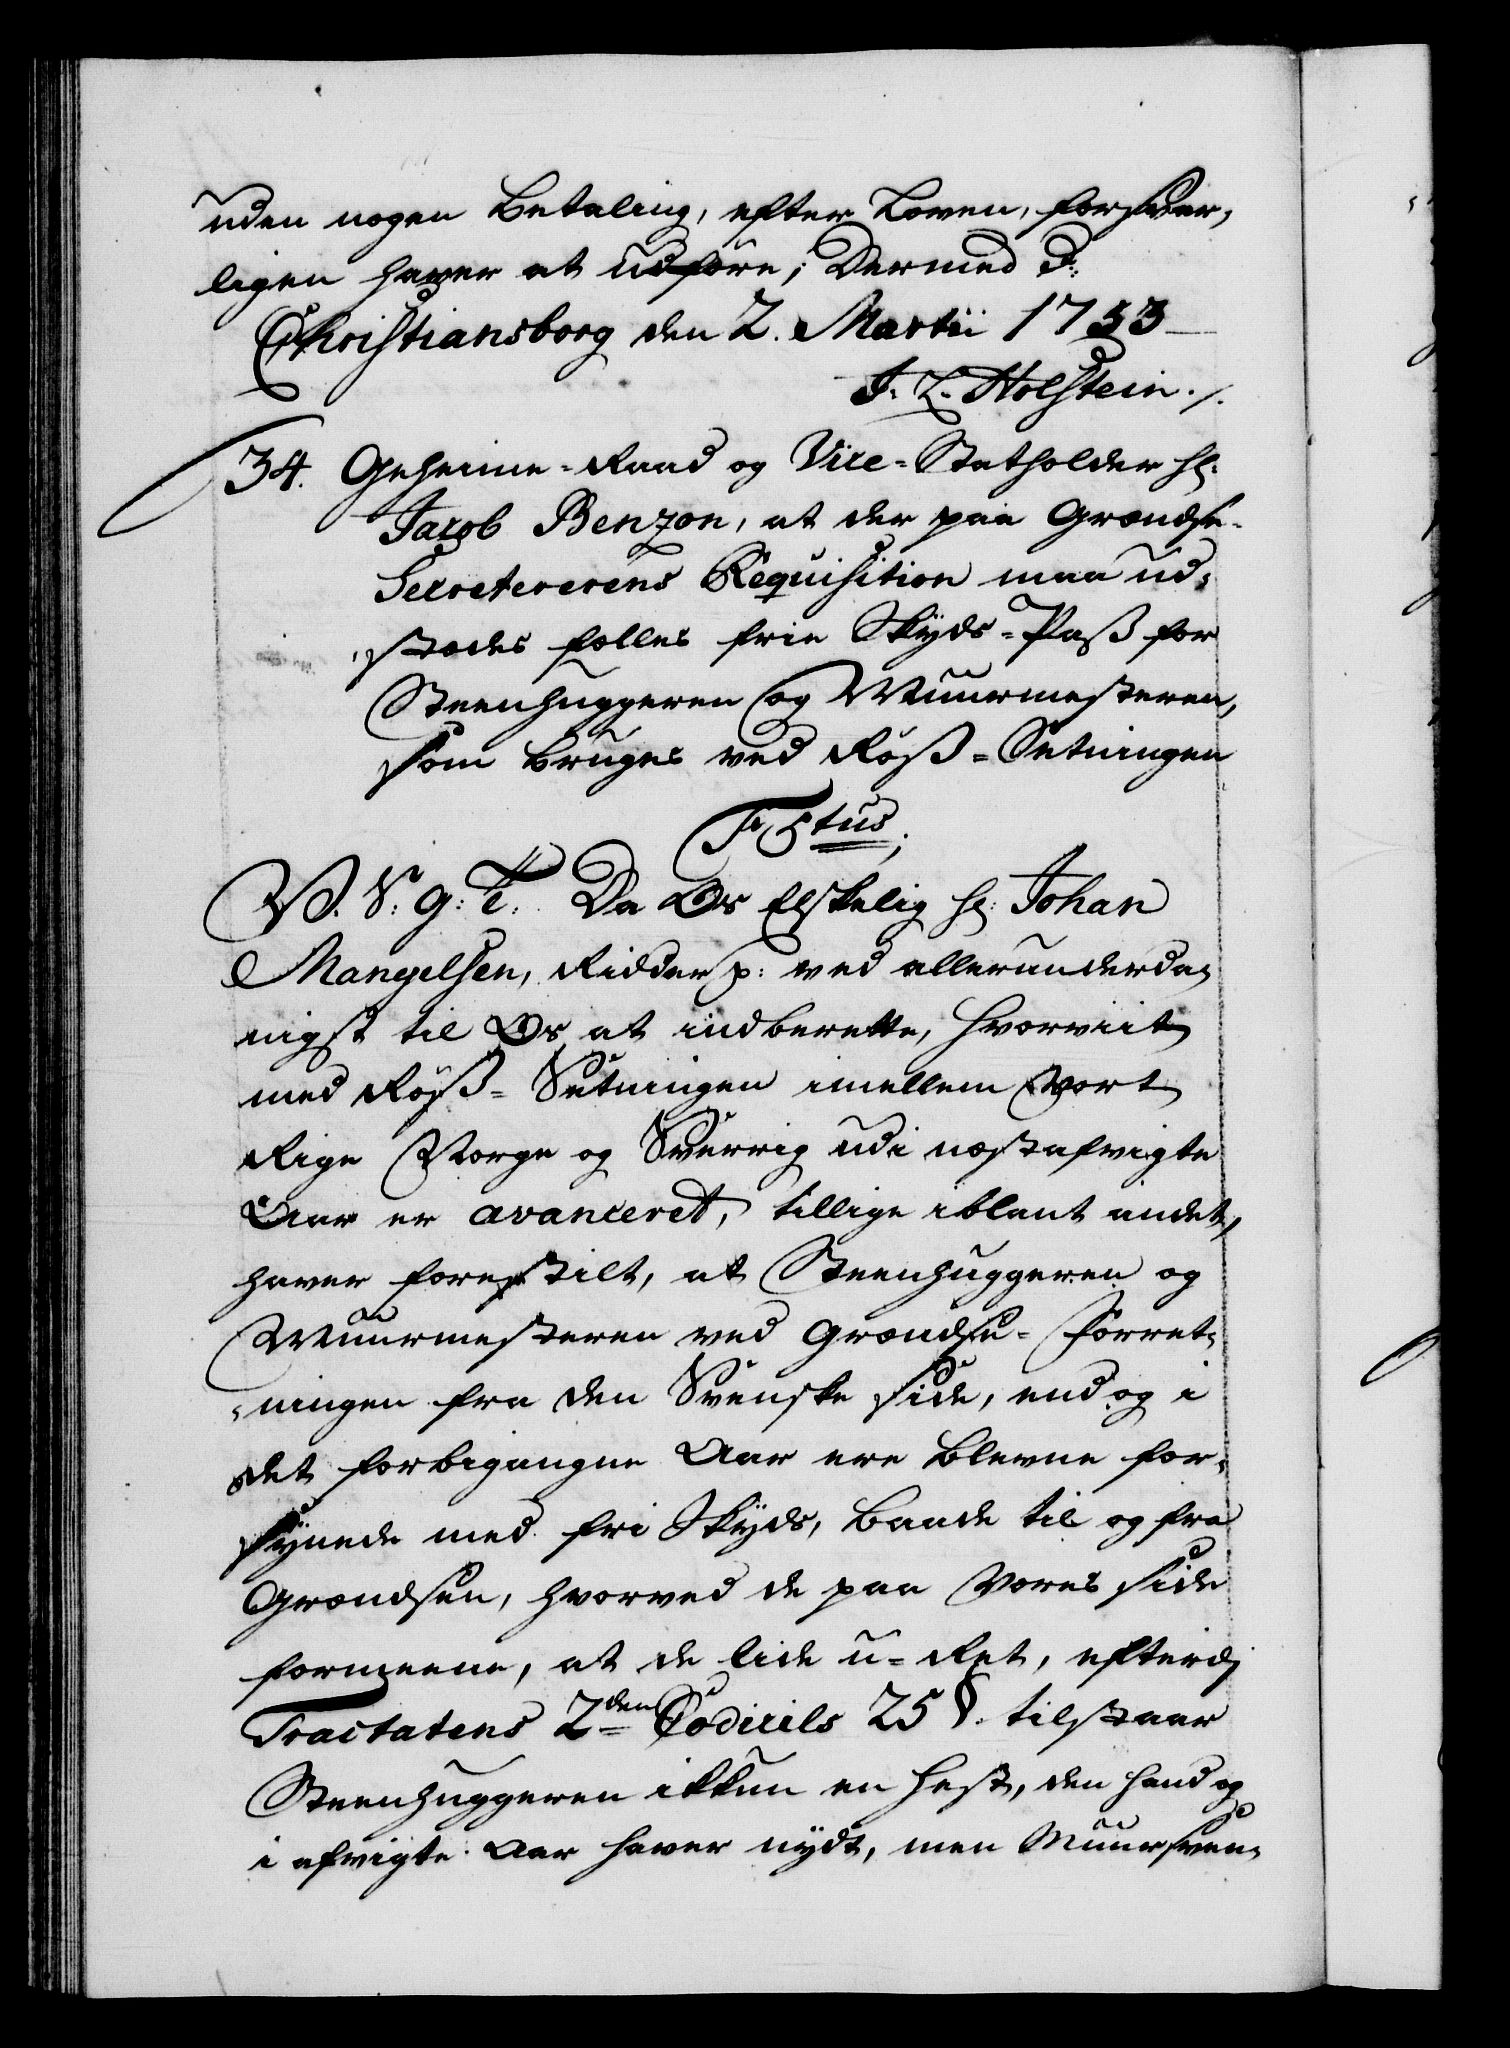 uden nogen Betaling, efter Loven, forsvar-
ligen haver at udføre; Dermed d:
Christiansborg den 2. Martii 1753
J. L. Holstein ./.
34. Geheime-Raad og Vice-Statholder Hr:
Jacob Benzon, at der paa Grændse-
Secretererens Requisition maa ud-
stædes fælles frie Skyds-Pass for
Steenhuggeren og Muurmesteren,
som bruges ved Röss-Setningen
F 5tus;
V. S: g: T: Da Os Elskelig Hr: Johan
Mangelsen, Ridder p: ved allerunderda-
nigst til Os at indberette, hvorviit
med Röss-Setningen imellem Vort
Rige Norge og Sverrig udi næstafvigte
Aar er avanceret, tillige iblant andet,
haver forestilt, at Steenhuggeren og
Muurmesteren ved Grændse-Forret-
ningen fra den Svenske side, end og i
det forbigangne Aar ere blevne for-
synede med fri Skyds, baade til og fra
Grændsen, hvorved de paa Vores side
formeene, at de lide u-Ret, efterdj
Tractatens 2den Codicils 25 §. tilstaar
Steenhuggeren ikkun en Hest, den hand og
i afvigte Aar haver nydt, men Muursven-